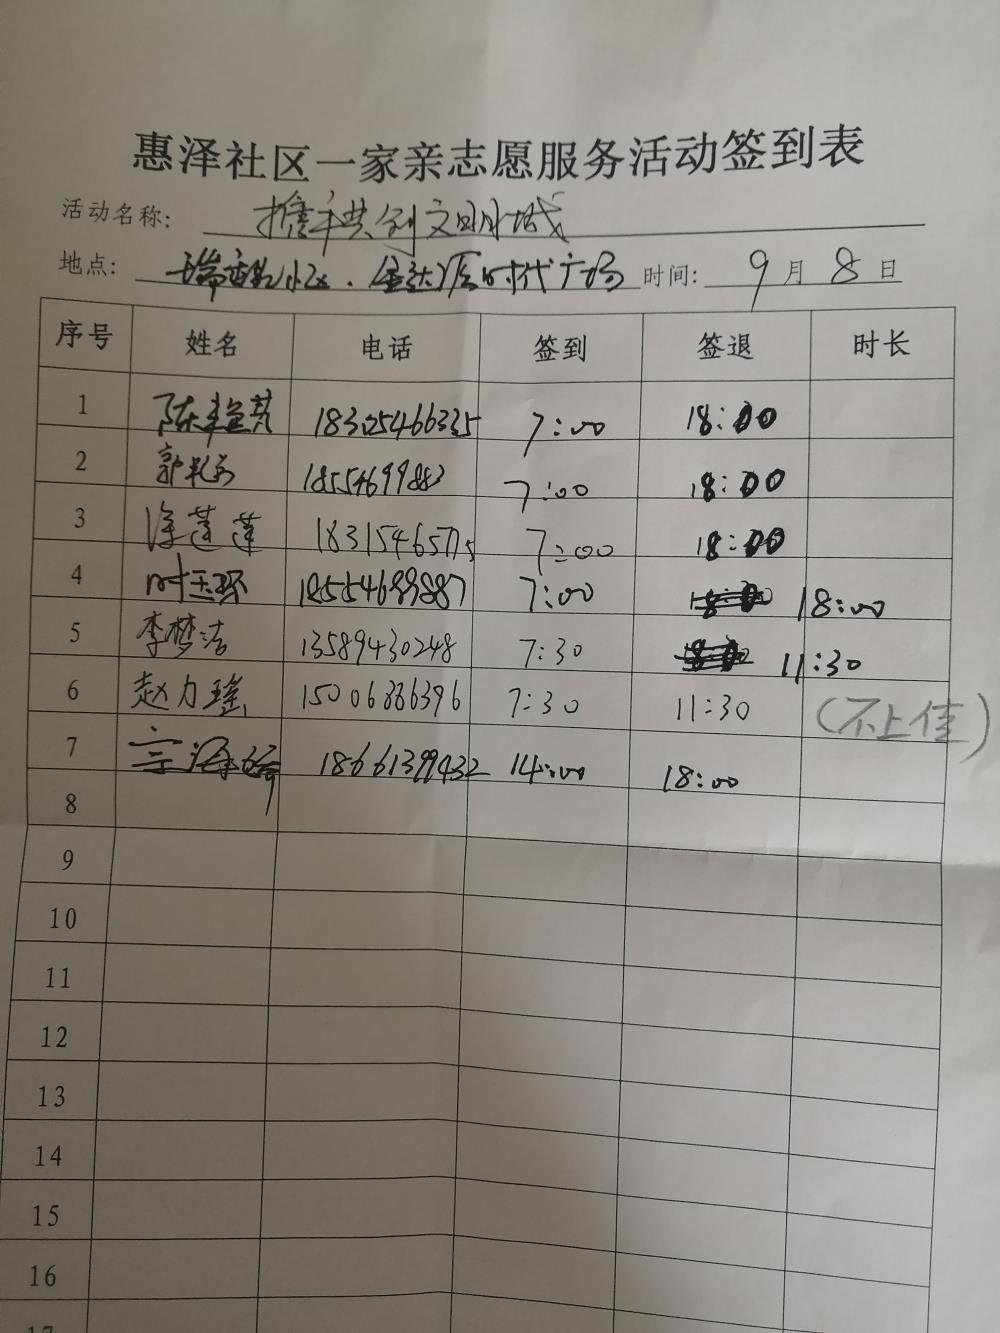 惠泽社区一家亲志愿服务活动签到表
活动名称: 携手共创文明城
地点: 小区、时代广场 时间: 9月8日
序号 姓名 电话 签到 签退 时长
1 陈 18305466335 7:00 18:00
2 郭 7:00 18:00
3 徐莲莲 7:00 18:00
4 时玉环 18554689887 7:00 18:00
5 李梦洁 13589430248 7:30 11:30
6 赵力瑶 15006886396 7:30 11:30 (不上传)
7 18661399432 14:00 18:00
8
9
10
11
12
13
14
15
16
17